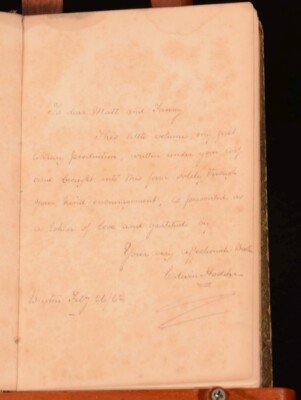 To dear Matt and Fanny
This little volume my first
literary production, written under your roof
and brought into this form solely through
your kind encouragement, is presented as
a token of love and gratitude by
Your very affectionate
Edwin